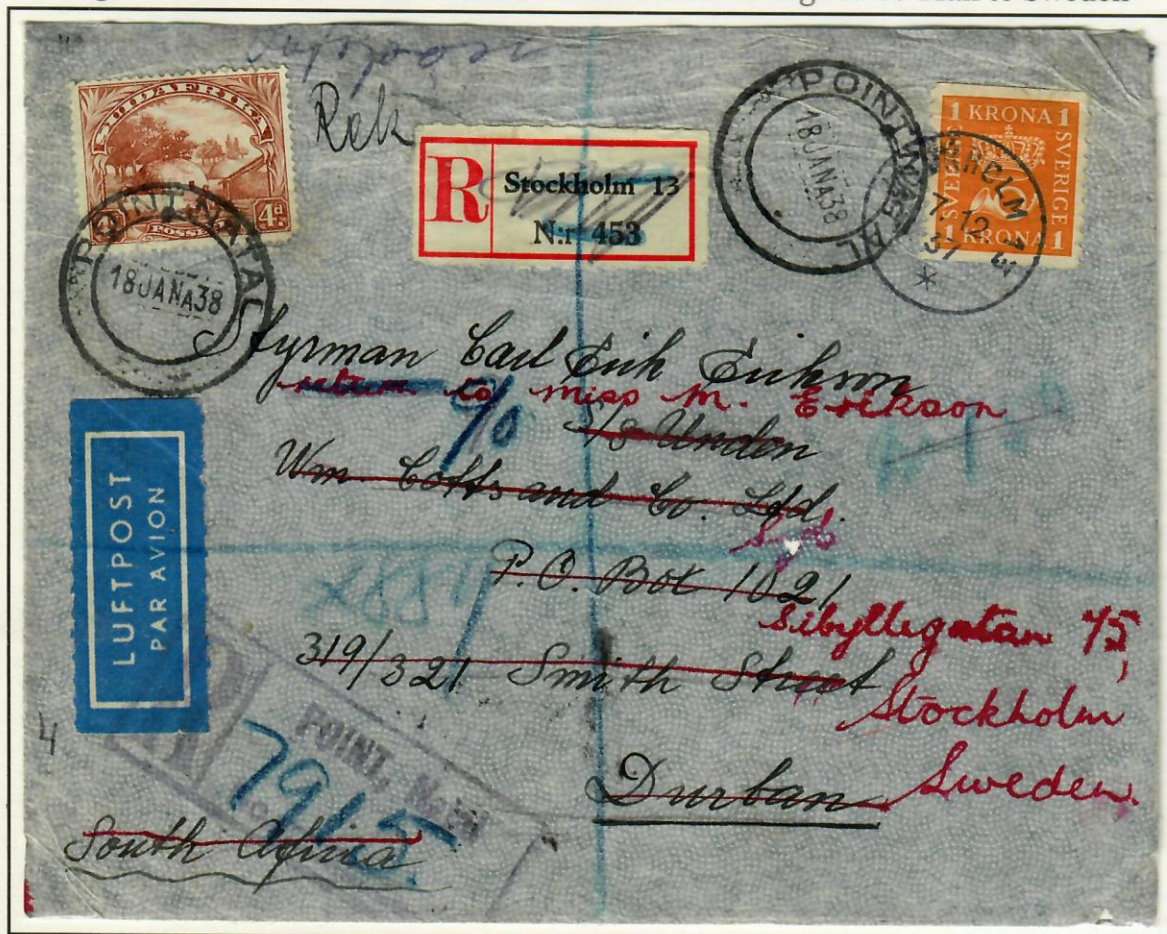 to Sweden
SUIDAFRIKA
4d
4d
POSSEEL
Rek
R
Stockholm 13
N:r 453
POINT NATAL
18 JAN A 38
POINT
18 JAN A 38
1 KRONA 1
SVERIGE
SVERIGE
1 KRONA 1
STOCKHOLM 13
7.12.37
Styrman Carl Erik Erikson
return to Miss M. Erikson
c/o
S/s Unden
Wm. Cotts and Co. Ltd.
Syb
P.O. Box 1021
Sibyllegatan 75,
319/321 Smith Street
Stockholm
Durban
Sweden.
South Africa
LUFTPOST
PAR AVION
POINT, Natal
7915
4